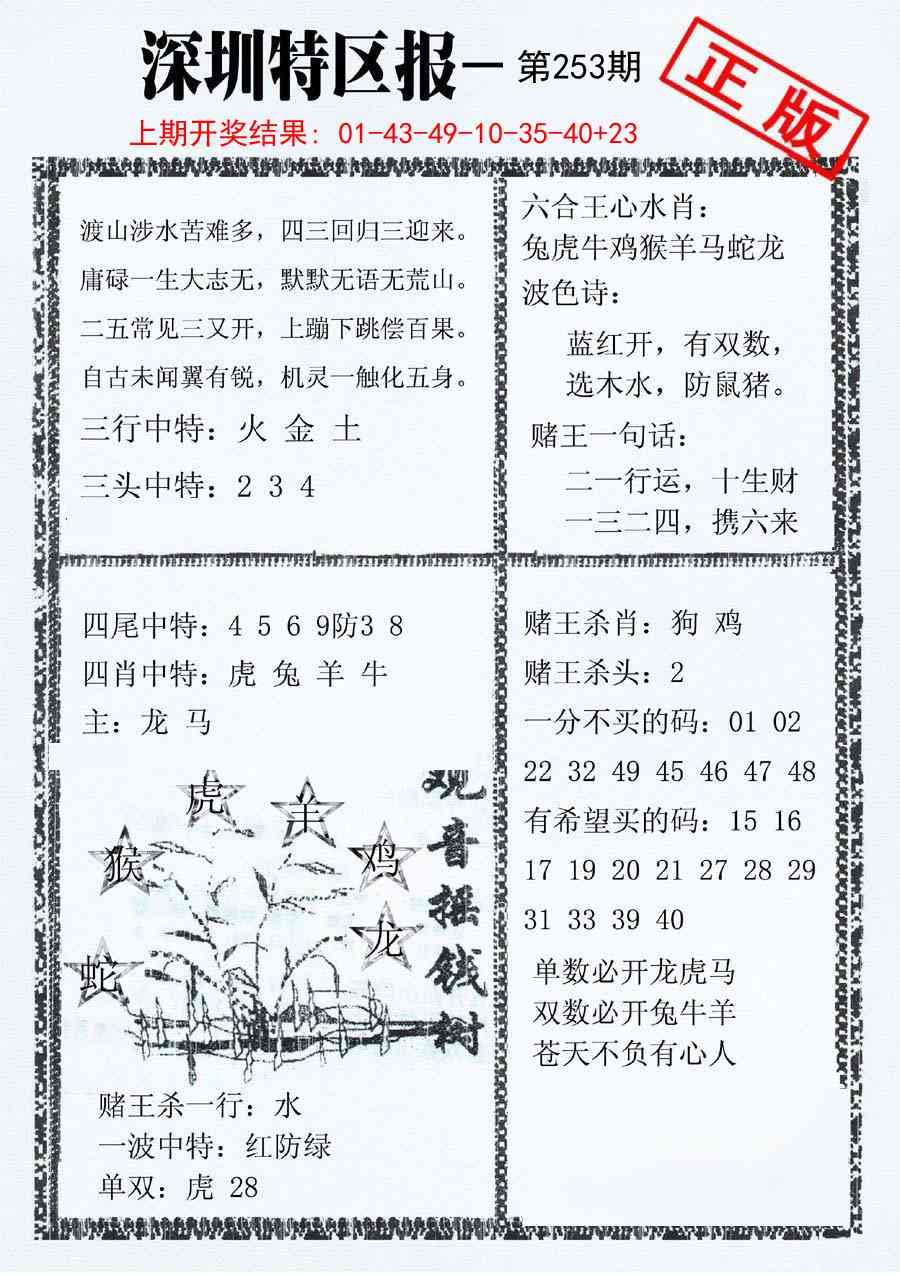 深圳特区报—第253期
正版
上期开奖结果：01-43-49-10-35-40+23
渡山涉水苦难多，四三回归三迎来。
庸碌一生大志无，默默无语无荒山。
二五常见三又开，上蹦下跳偿百果。
自古未闻翼有锐，机灵一触化五身。
三行中特：火 金 土
三头中特：2 3 4
六合王心水肖：
兔虎牛鸡猴羊马蛇龙
波色诗：
蓝红开，有双数，
选木水，防鼠猪。
赌王一句话：
二一行运，十生财
一三二四，携六来
四尾中特：4 5 6 9防3 8
四肖中特：虎 兔 羊 牛
主：龙 马
观音摇钱树
虎
羊
猴
鸡
龙
蛇
赌王杀一行：水
一波中特：红防绿
单双：虎 28
赌王杀肖：狗 鸡
赌王杀头：2
一分不买的码：01 02
22 32 49 45 46 47 48
有希望买的码：15 16
17 19 20 21 27 28 29
31 33 39 40
单数必开龙虎马
双数必开兔牛羊
苍天不负有心人